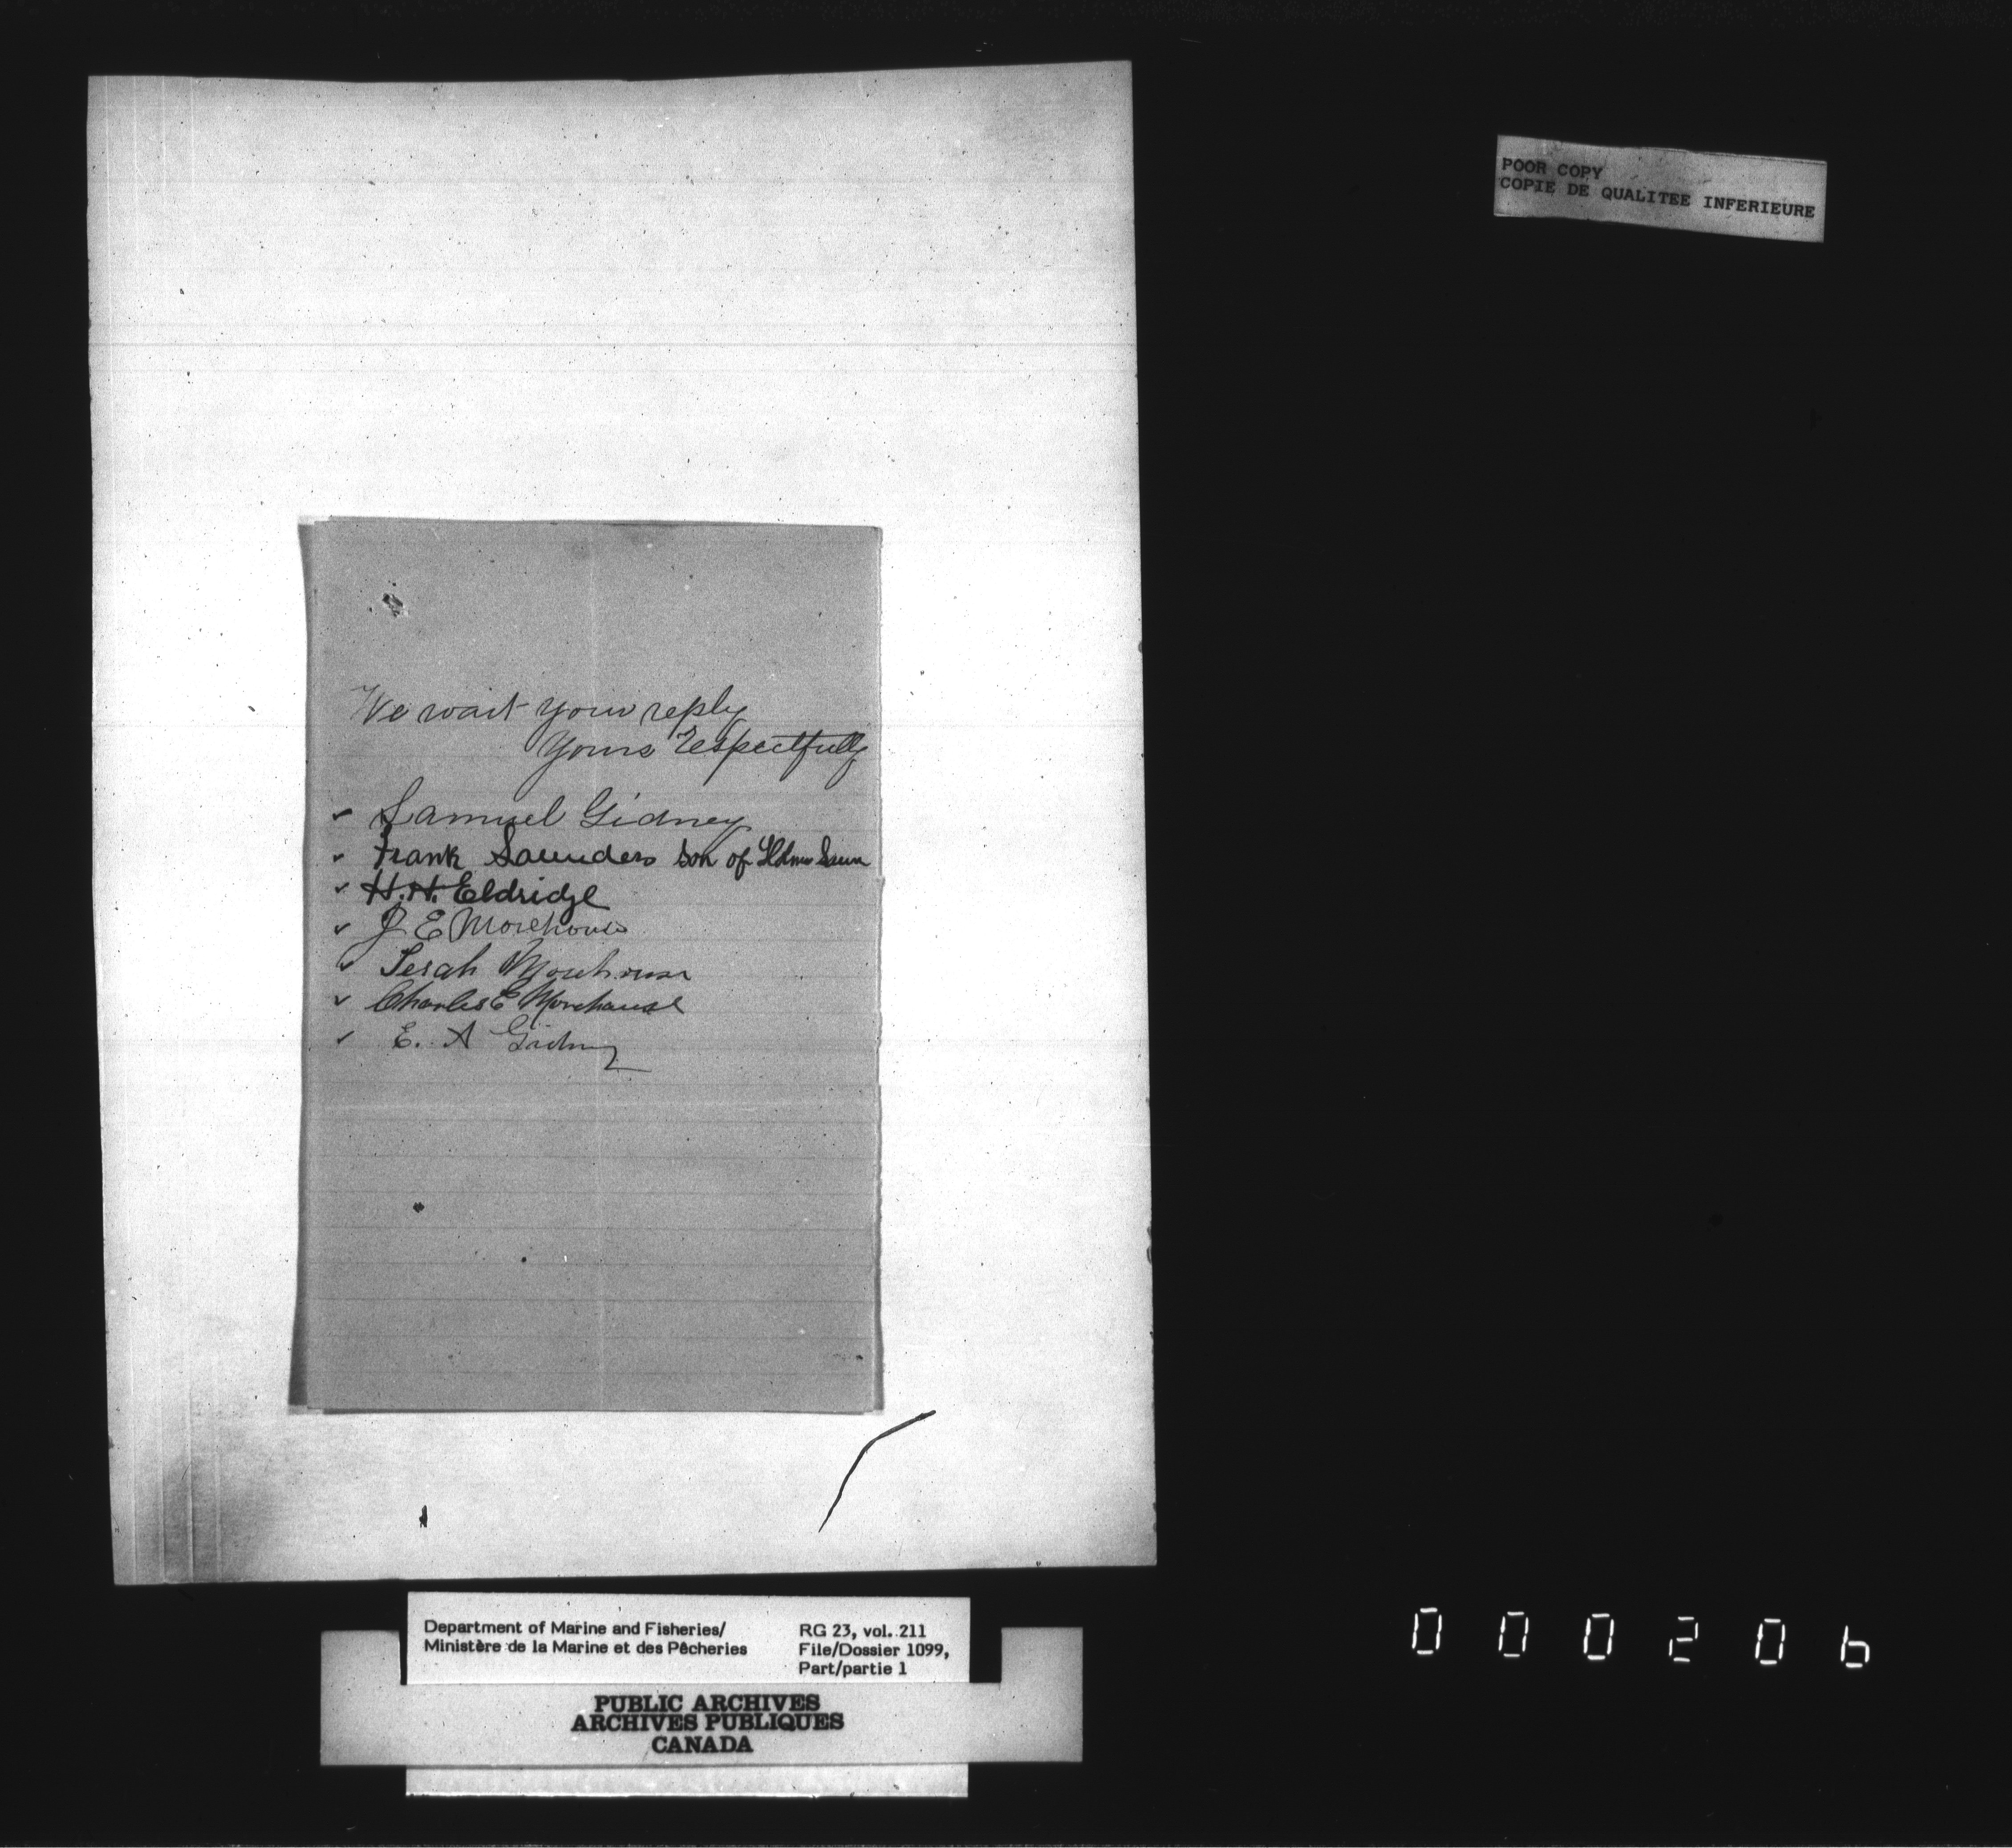 POOR COPY
COPIE DE QUALITEE INFERIEURE
We wait your reply
Yours Respectfully
✓ Samuel Gidney
✓ Frank Saunders son of
✓ H. H. Eldridge
✓ J E Morehouse
✓ Morehouse
✓ Charles E Morehouse
✓ E. A Gidney
Department of Marine and Fisheries/
Ministère de la Marine et des Pêcheries
RG 23, vol. 211
File/Dossier 1099,
Part/partie 1
PUBLIC ARCHIVES
ARCHIVES PUBLIQUES
CANADA
000206